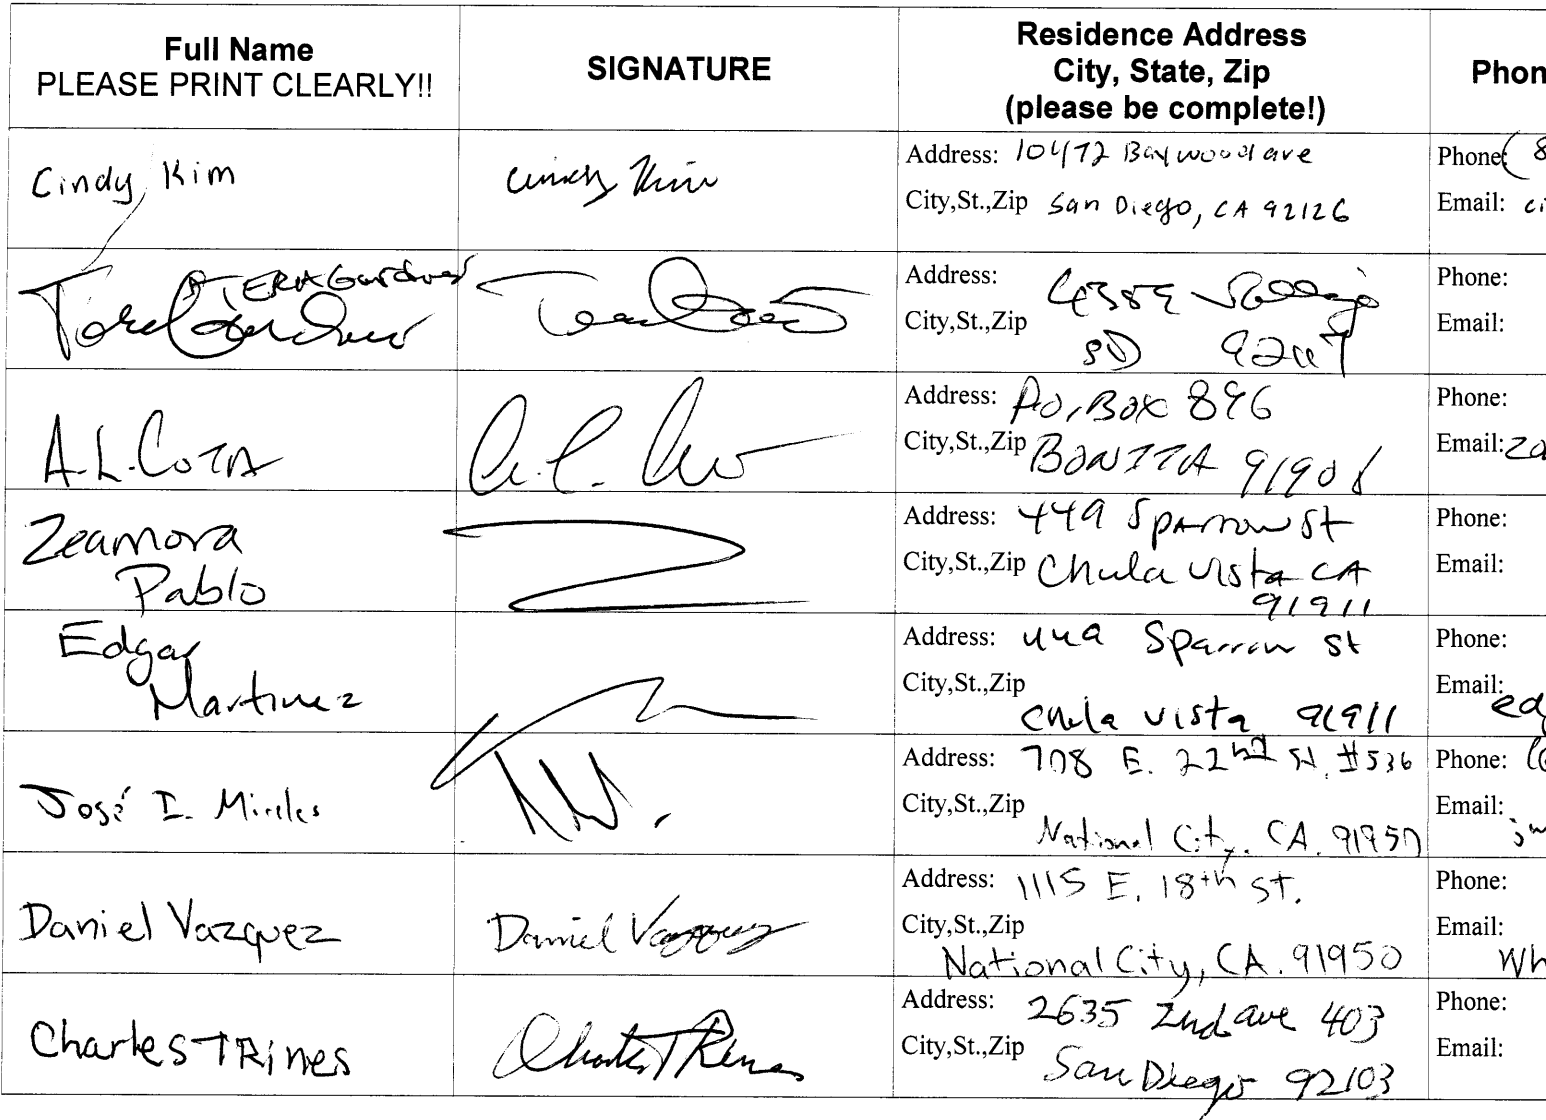 Full Name
PLEASE PRINT CLEARLY!!
SIGNATURE
Residence Address
City, State, Zip
(please be complete!)
Phon
Cindy Kim
Cindy Kim
Address: 10472 Baywood ave
City,St.,Zip San Diego, CA 92126
Phone: (8
Email: ci
TERA Gardner
Gardner
Address: 4389
City,St.,Zip
SD 92117
Phone:
Email:
A.L. COTA
Address: P.O. BOX 896
City,St.,Zip BONITA 91908
Phone:
Email: za
Zeamora
Pablo
Address: 449 Sparrow St
City,St.,Zip Chula Vista CA
91911
Phone:
Email:
Edgar
Martinez
Address: 449 Sparrow St
City,St.,Zip
Chula Vista 91911
Phone:
Email: edg
José I. Mireles
Address: 708 E. 22nd St. #536
City,St.,Zip
National City, CA. 91950
Phone: (6
Email:
Daniel Vazquez
Daniel Vazquez
Address: 1115 E. 18th ST.
City,St.,Zip
National City, CA. 91950
Phone:
Email:
Wh
Charles TRines
Charles TRines
Address: 2635 2nd ave 403
City,St.,Zip San Diego 92103
Phone:
Email: